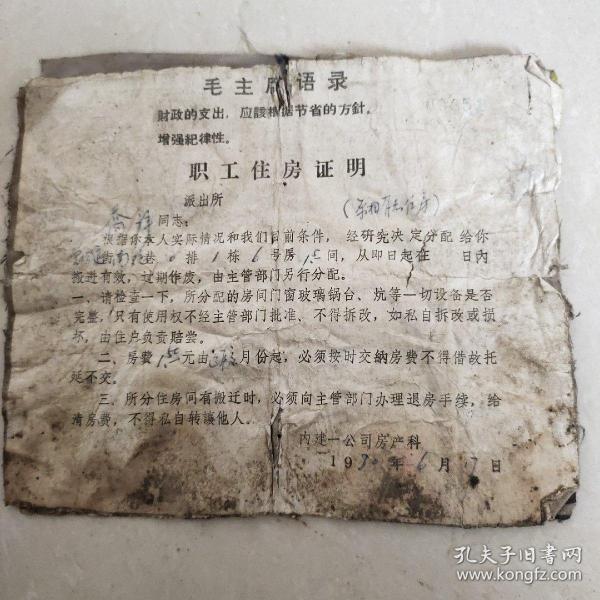 毛主席语录
財政的支出，应該根据节省的方針。
增强紀律性。
职工住房证明
派出所
同志：
根据你本人实际情况和我们目前条件，经研究决定分配给你
排1栋6号房 间，从即日起在 日內
搬进有效，过期作废，由主管部门另行分配。
一、请检查一下，所分配的房间门窗玻璃锅台、炕等一切设备是否
完整，只有使用权不经主管部门批准、不得拆改，如私自拆改或损
坏，由住户负责赔尝。
二、房费 元由 月份起，必须按时交納房费不得借故托
延不交。
三、所分住房间有搬迁时，必须向主管部门办理退房手续，给
清房费，不得私自转讓他人。
内建一公司房产科
19 年6月17日
孔夫子旧书网
www.kongfz.com